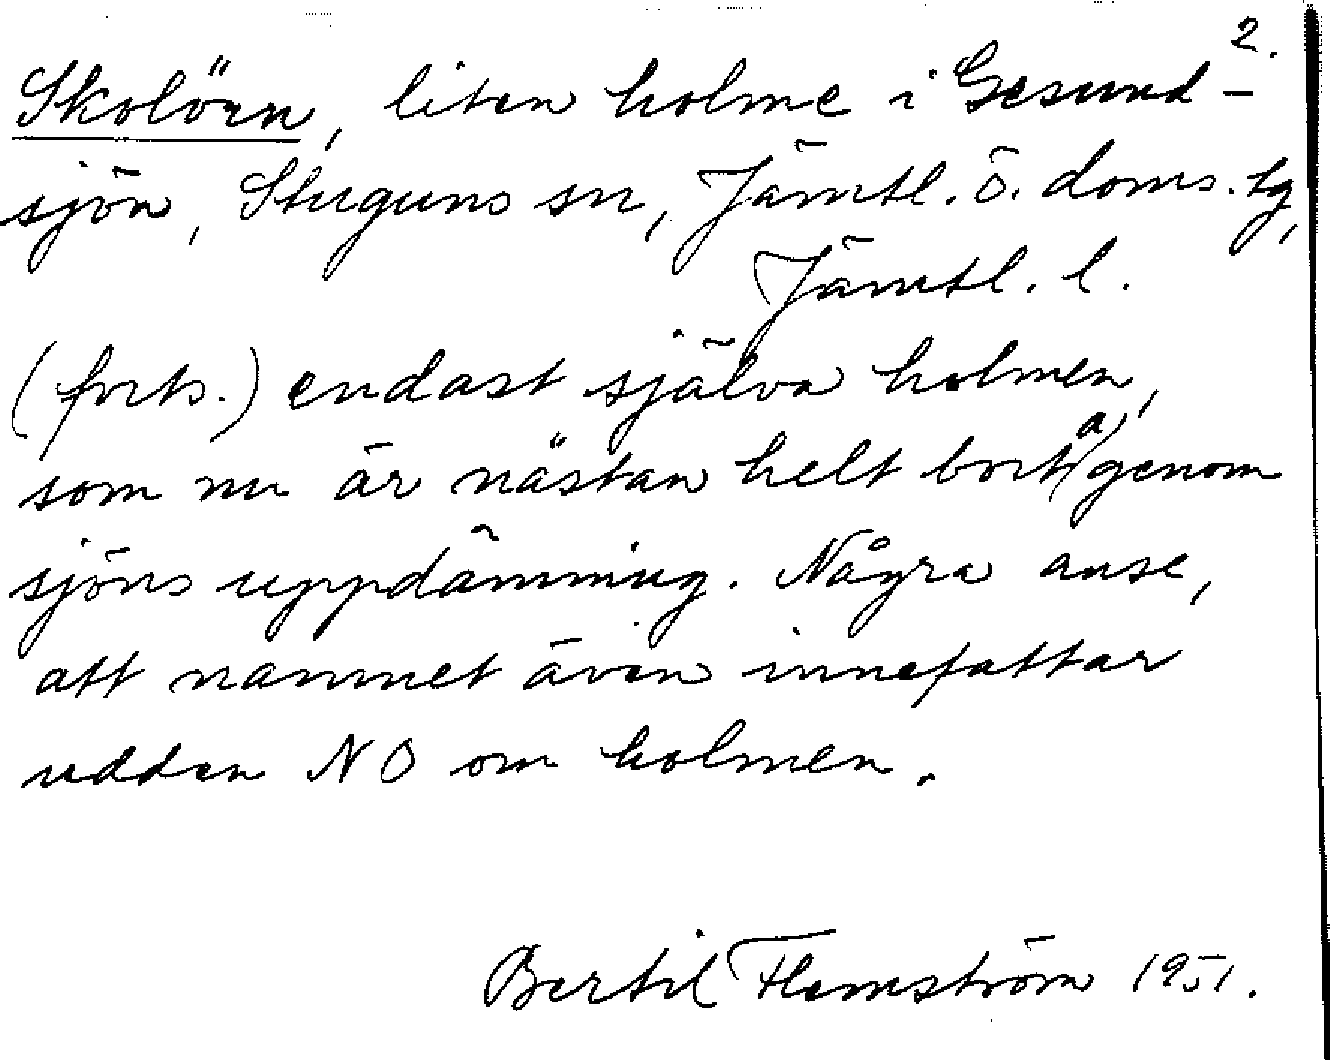 2.
Skolörn, liten holme i Gesund-
sjön, Stuguns sn, Jämtl. ö. doms. tg,
Jämtl. l.
(forts.) endast själva holmen,
som nu är nästan helt borta genom
sjöns uppdämning. Några anse,
att namnet även innefattar
udden NO om holmen.
Bertil Flemström 1951.